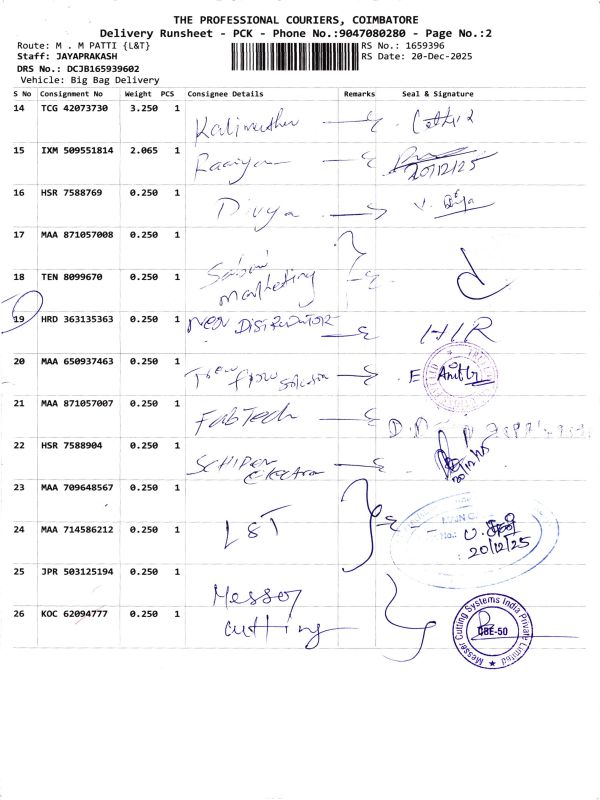 THE PROFESSIONAL COURIERS, COIMBATORE
Delivery Runsheet - PCK - Phone No.:9047080280 - Page No.:2
Route: M . M PATTI {L&T} RS No.: 1659396
Staff: JAYAPRAKASH RS Date: 20-Dec-2025
DRS No.: DCJB165939602
Vehicle: Big Bag Delivery
S No Consignment No Weight PCS Consignee Details Remarks Seal & Signature
14 TCG 42073730 3.250 1
15 IXM 509551814 2.065 1
20/12/25
16 HSR 7588769 0.250 1 Divya
17 MAA 871057008 0.250 1
18 TEN 8099670 0.250 1 marketing
19 HRD 363135363 0.250 1
20 MAA 650937463 0.250 1 flow
21 MAA 871057007 0.250 1 FabTech
22 HSR 7588904 0.250 1
23 MAA 709648567 0.250 1
24 MAA 714586212 0.250 1 L&T
20/12/25
25 JPR 503125194 0.250 1 Messer
26 KOC 62094777 0.250 1 cutting
Messer Cutting Systems India Private Limited
CBE-50